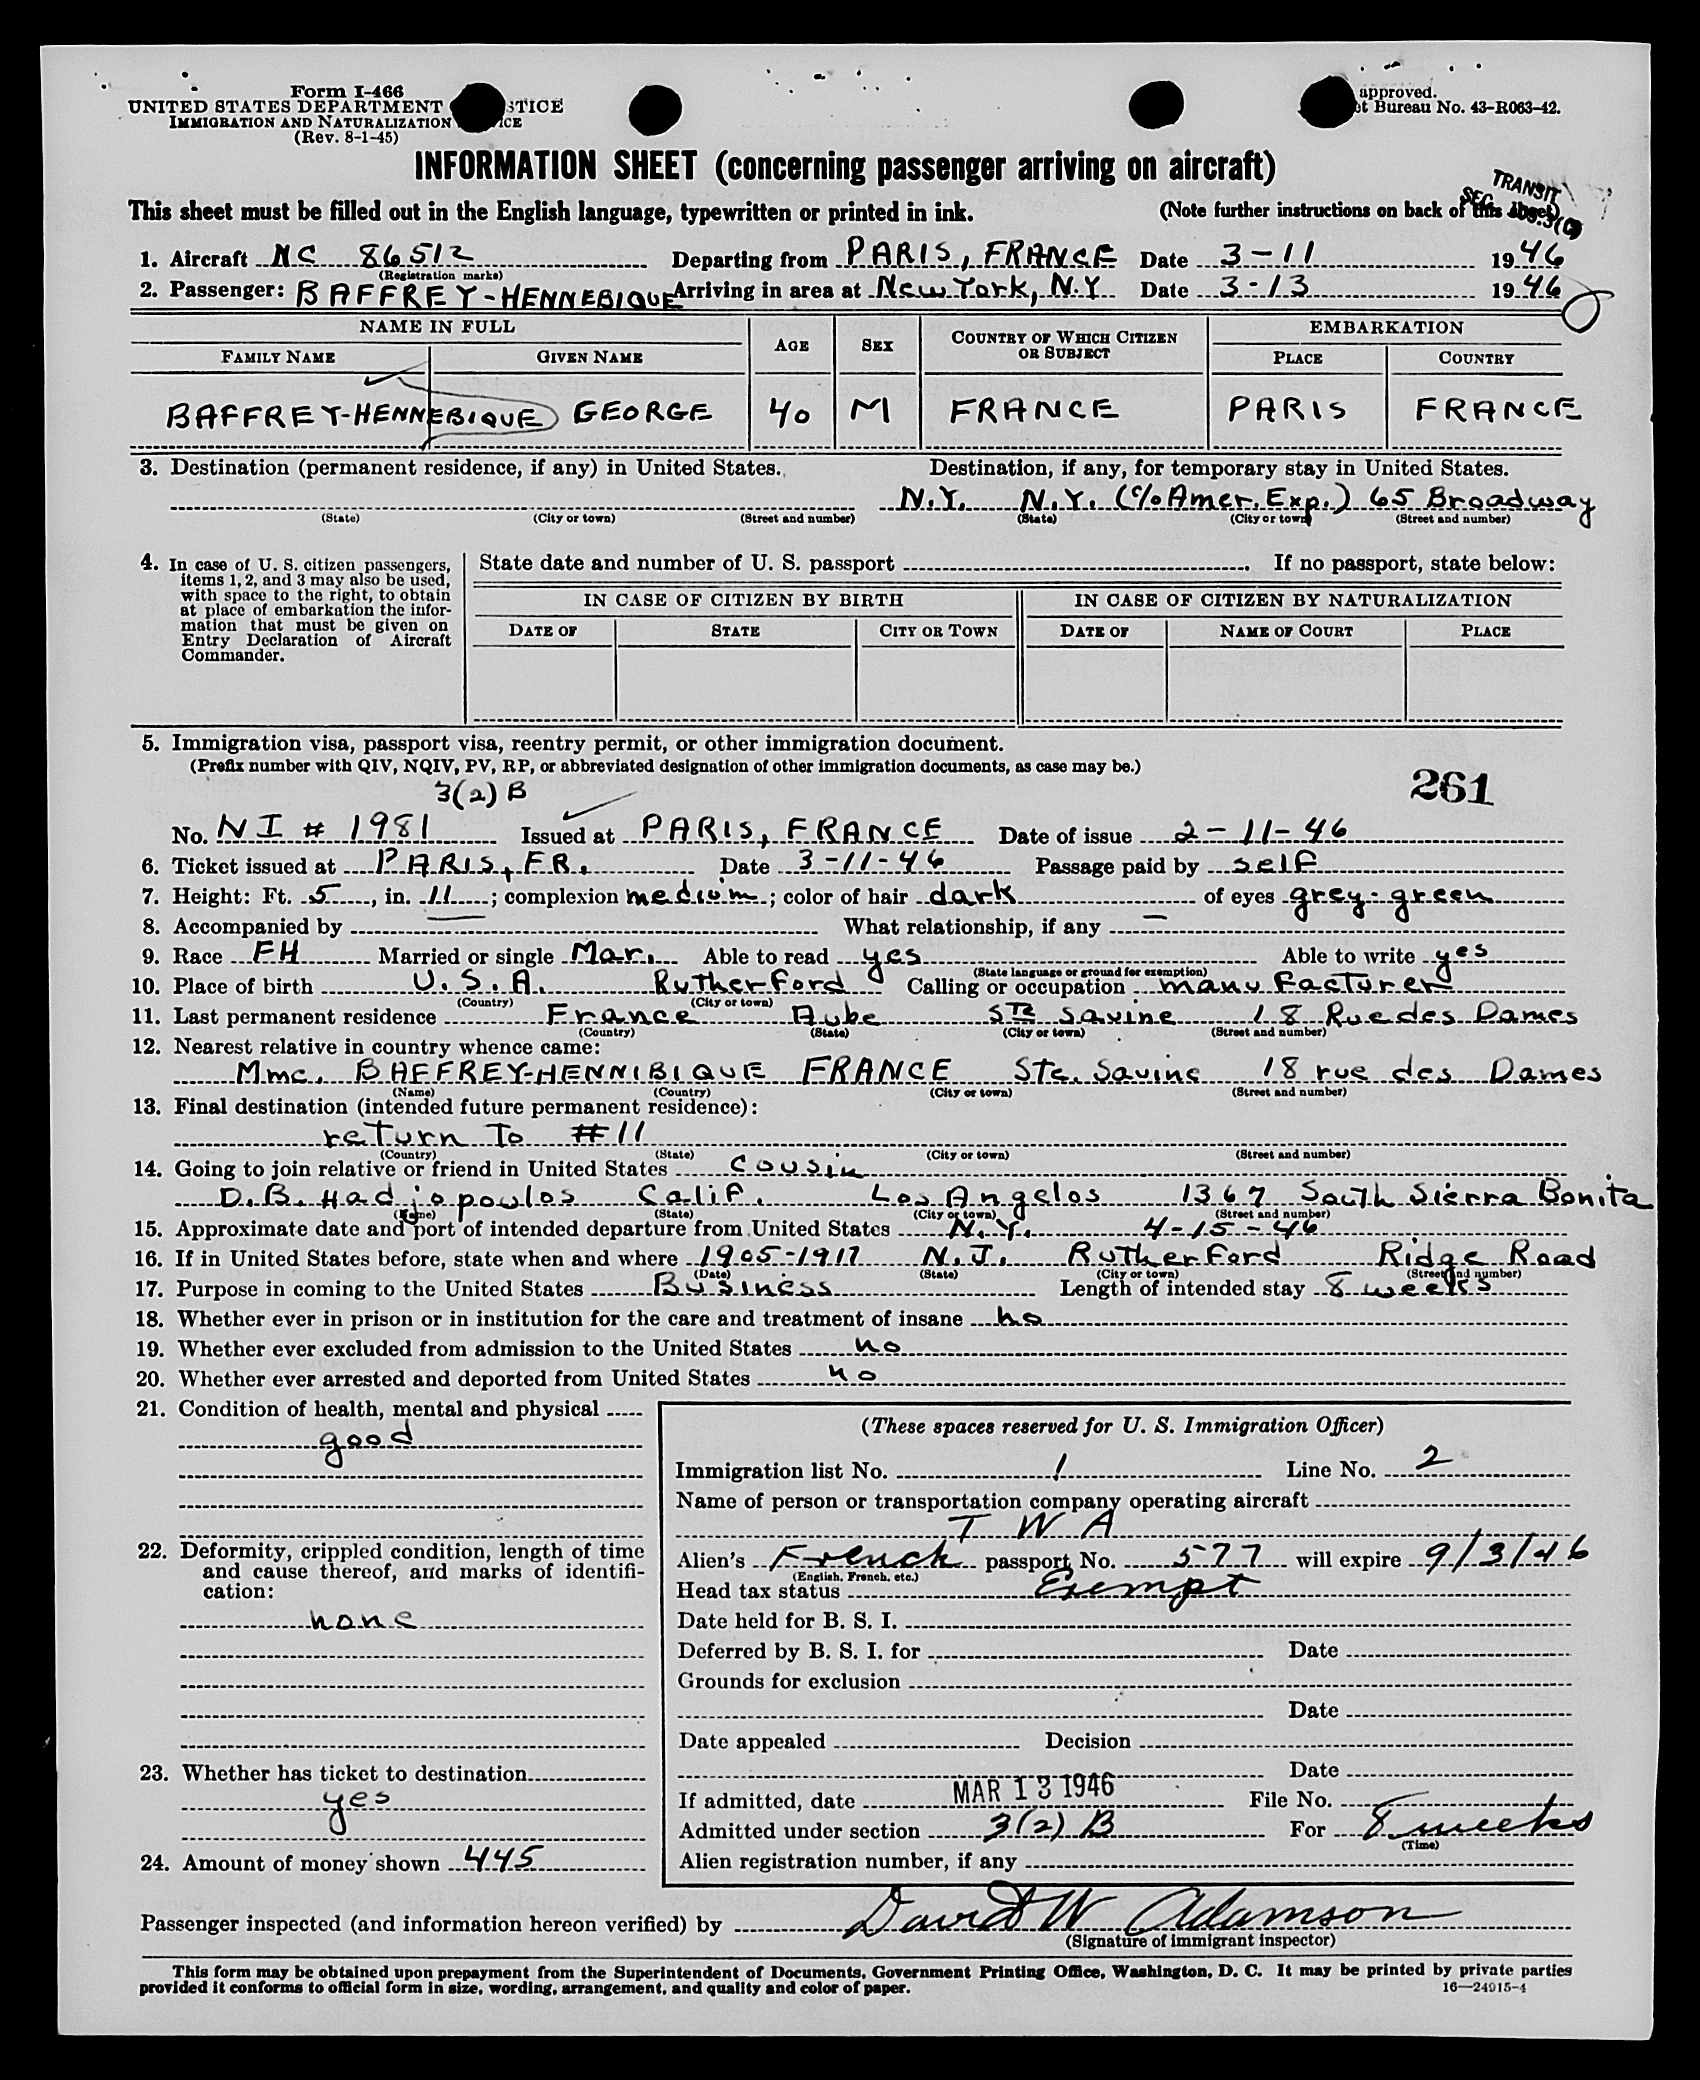 Form I-466
UNITED STATES DEPARTMENT STICE
IMMIGRATION AND NATURALIZATION ICE
(Rev. 8-1-45)
approved.
t Bureau No. 43-R063-42.
INFORMATION SHEET (concerning passenger arriving on aircraft)
TRANSIT
This sheet must be filled out in the English language, typewritten or printed in ink.
(Note further instructions on back of this sheet)
SEC. 3(
1. Aircraft NC 86512 Departing from PARIS, FRANCE Date 3-11 1946
(Registration marks)
2. Passenger: BAFFREY-HENNEBIQUE Arriving in area at New York, N.Y. Date 3-13 1946
NAME IN FULL
FAMILY NAME
GIVEN NAME
AGE
SEX
COUNTRY OF WHICH CITIZEN
OR SUBJECT
EMBARKATION
PLACE
COUNTRY
BAFFREY-HENNEBIQUE GEORGE 40 M FRANCE PARIS FRANCE
3. Destination (permanent residence, if any) in United States. Destination, if any, for temporary stay in United States.
N.Y. N.Y. (c/o Amer. Exp.) 65 Broadway
(State) (City or town) (Street and number) (State) (City or town) (Street and number)
4. In case of U. S. citizen passengers,
items 1, 2, and 3 may also be used,
with space to the right, to obtain
at place of embarkation the infor-
mation that must be given on
Entry Declaration of Aircraft
Commander.
State date and number of U. S. passport If no passport, state below:
IN CASE OF CITIZEN BY BIRTH
IN CASE OF CITIZEN BY NATURALIZATION
DATE OF STATE CITY OR TOWN DATE OF NAME OF COURT PLACE
5. Immigration visa, passport visa, reentry permit, or other immigration document.
(Prefix number with QIV, NQIV, PV, RP, or abbreviated designation of other immigration documents, as case may be.)
3(2) B
261
No. NI # 1981 Issued at PARIS, FRANCE Date of issue 2-11-46
6. Ticket issued at PARIS, FR. Date 3-11-46 Passage paid by self
7. Height: Ft. 5, in. 11; complexion medium; color of hair dark of eyes grey-green
8. Accompanied by — What relationship, if any —
9. Race FH Married or single Mar. Able to read yes Able to write yes
(State language or ground for exemption)
10. Place of birth U.S.A. Rutherford Calling or occupation manufacturer
(Country) (City or town)
11. Last permanent residence France Aube Ste Savine 18 Rue des Dames
(Country) (State) (City or town) (Street and number)
12. Nearest relative in country whence came:
Mme. BAFFREY-HENNIBIQUE FRANCE Ste. Savine 18 rue des Dames
(Name) (Country) (City or town) (Street and number)
13. Final destination (intended future permanent residence):
return to #11
(Country) (State) (City or town) (Street and number)
14. Going to join relative or friend in United States cousin
D.B. Hadjopoulos Calif. Los Angelos 1367 South Sierra Bonita
(Name) (State) (City or town) (Street and number)
15. Approximate date and port of intended departure from United States N.Y. 4-15-46
16. If in United States before, state when and where 1905-1917 N.J. Rutherford Ridge Road
(Date) (State) (City or town) (Street and number)
17. Purpose in coming to the United States Business Length of intended stay 8 weeks
18. Whether ever in prison or in institution for the care and treatment of insane no
19. Whether ever excluded from admission to the United States no
20. Whether ever arrested and deported from United States no
21. Condition of health, mental and physical
good
22. Deformity, crippled condition, length of time
and cause thereof, and marks of identifi-
cation:
none
23. Whether has ticket to destination
yes
24. Amount of money shown 445
(These spaces reserved for U. S. Immigration Officer)
Immigration list No. 1 Line No. 2
Name of person or transportation company operating aircraft
T W A
Alien's French passport No. 577 will expire 9/3/46
(English, French, etc.)
Head tax status Exempt
Date held for B. S. I.
Deferred by B. S. I. for Date
Grounds for exclusion
Date
Date appealed Decision
Date
If admitted, date MAR 13 1946 File No.
Admitted under section 3(2) B For 8 weeks
(Time)
Alien registration number, if any
Passenger inspected (and information hereon verified) by David W Adamson
(Signature of immigrant inspector)
This form may be obtained upon prepayment from the Superintendent of Documents, Government Printing Office, Washington, D. C. It may be printed by private parties
provided it conforms to official form in size, wording, arrangement, and quality and color of paper.
16—24915-4